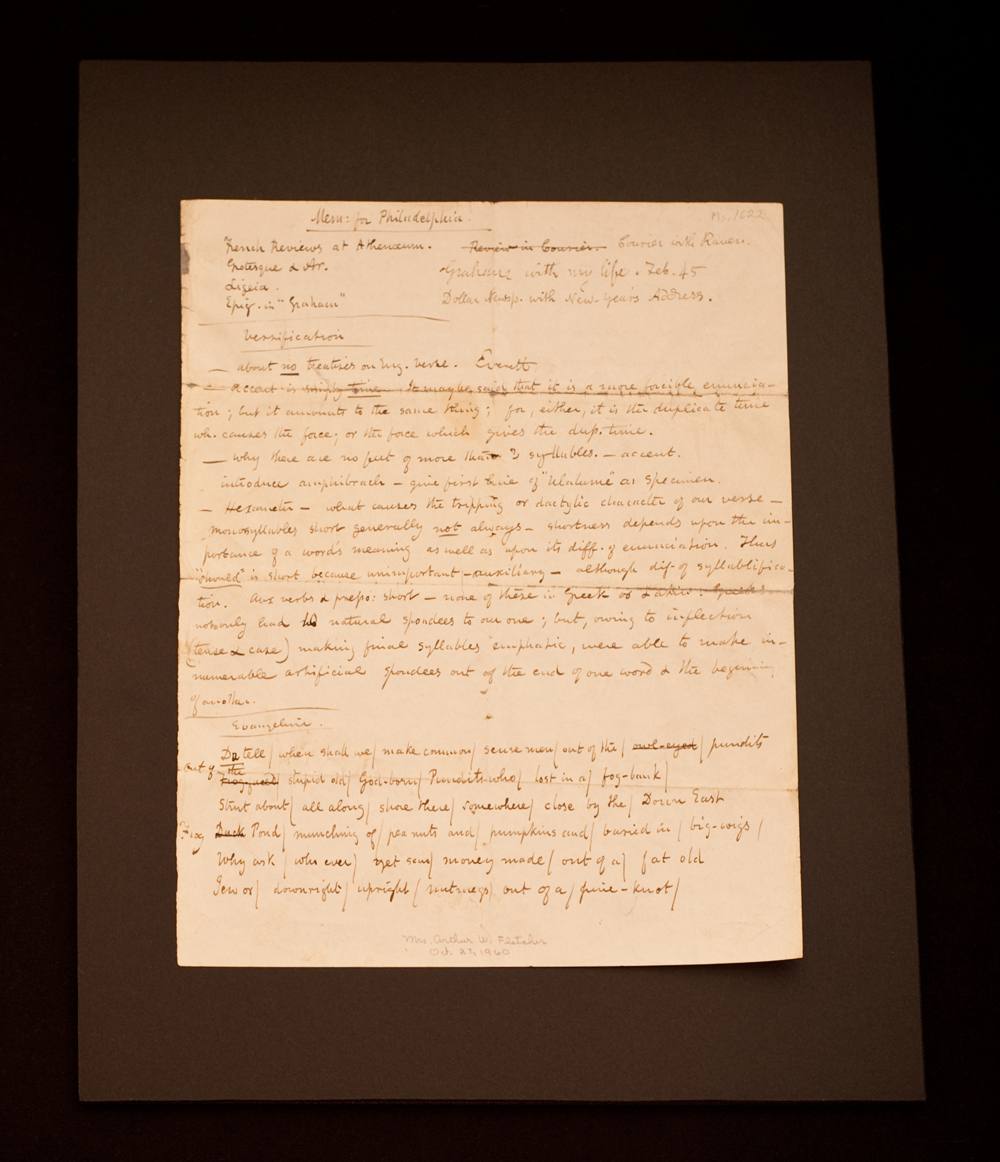 Mem: for Philadelphia.
Ms. 1622
French Reviews at Athenæum. Review in Courier. Courier with Raven.
Grotesque & Ar. Graham's with my life. Feb. 45
Ligeia. Dollar Newsp. with New-Year's Address.
Epig. in "Graham"
Versification
— about no treatises on Eng. verse. Everett
— accent is simply time. It may be said that it is a more forcible enuncia-
tion; but it amounts to the same thing; for, either, it is the duplicate time
wh. causes the force; or the force which gives the dup. time.
— why there are no feet of more than 3 syllables. — accent.
introduce amphibrach — give first line of "Ulalume" as specimen.
— Hexameter — what causes the tripping or dactylic character of our verse —
monosyllables short generally not always — shortness depends upon the im-
portance of a word's meaning as well as upon its diff. of enunciation. Thus
is short because unimportant — auxiliary — although dif. of syllabifica-
tion. Aux verbs & prepo: short — none of these in Greek or Latin: Greeks
not only had natural spondees to our one; but, owing to inflection
(tense & case) making final syllables emphatic, were able to make in-
numerable artificial spondees out of the end of one word & the beginning
of another.
Evangeline.
Do tell / when shall we / make common / sense men / out of the / owl-eyed / pundits
out of the
Froggined / stupid old / God-born / Pundits who / lost in a / fog-bank /
Strut about / all along / shore there / somewhere / close by the / Down East
Frog Duck Pond / munching of / pea nuts and / pumpkins and / buried in / big-wigs /
Why ask / who ever / yet saw / money made / out of a / fat old
Jew or / downright / upright / nutmegs / out of a / pine-knot /
Mrs. Arthur W. Fletcher
Oct. 27, 1960